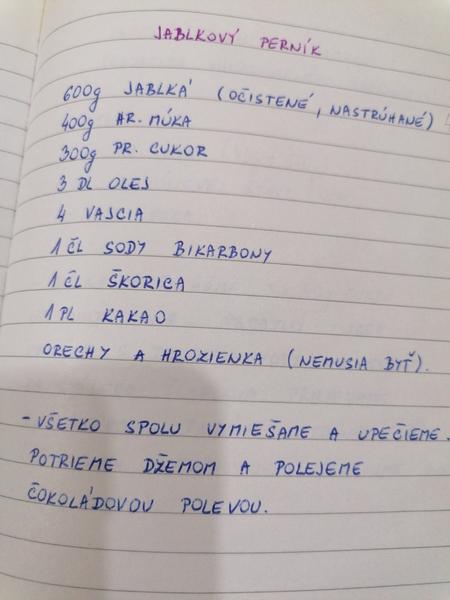 JABLKOVÝ PERNÍK
600g JABLKÁ (OČISTENÉ, NASTRÚHANÉ)
400g HR. MÚKA
300g PR. CUKOR
3 DL OLEJ
4 VAJCIA
1 ČL SODY BIKARBONY
1 ČL ŠKORICA
1 PL KAKAO
ORECHY A HROZIENKA (NEMUSIA BYŤ).
- VŠETKO SPOLU VYMIEŠAME A UPEČIEME.
POTRIEME DŽEMOM A POLEJEME
ČOKOLÁDOVOU POLEVOU.